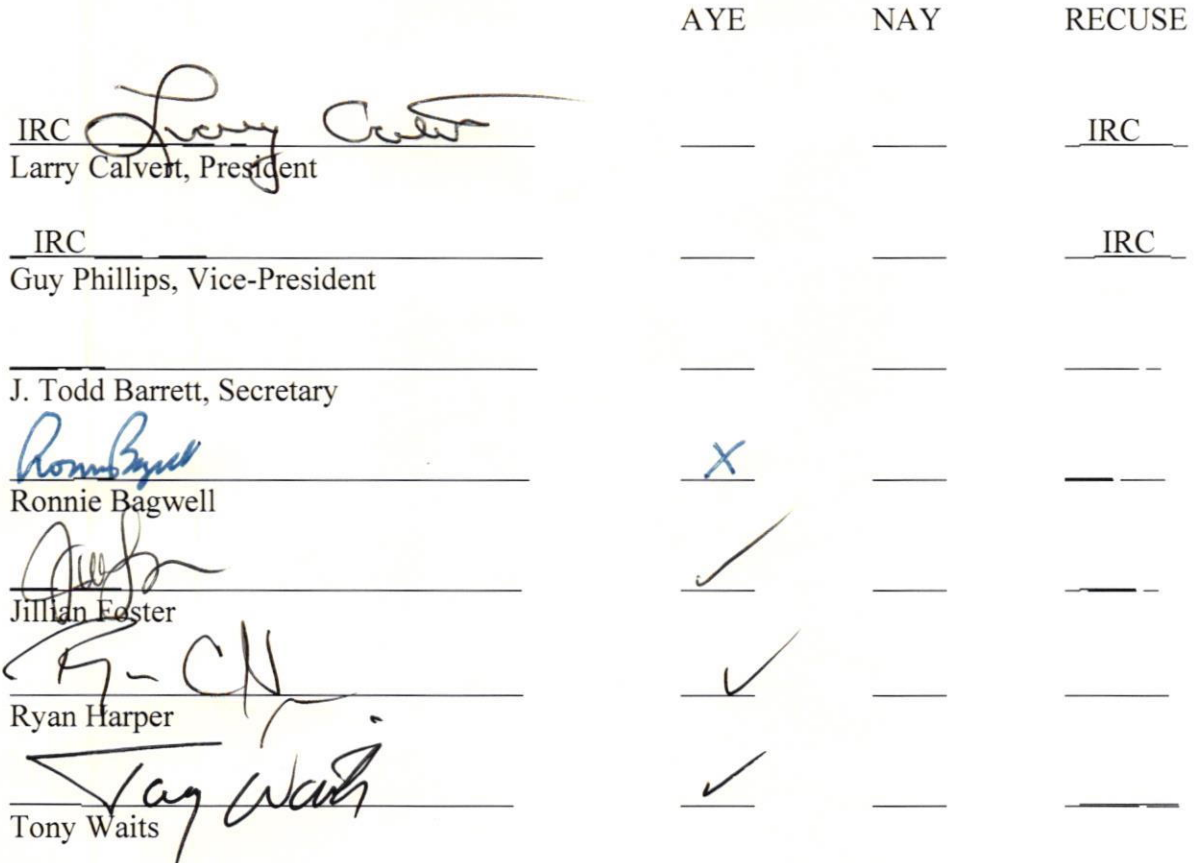 AYE NAY RECUSE
IRC Larry Calvert IRC
Larry Calvert, President
IRC IRC
Guy Phillips, Vice-President
J. Todd Barrett, Secretary
Ronnie Bagwell X
Ronnie Bagwell
✓
Jillian Foster
✓
Ryan Harper
Tony Waits ✓
Tony Waits